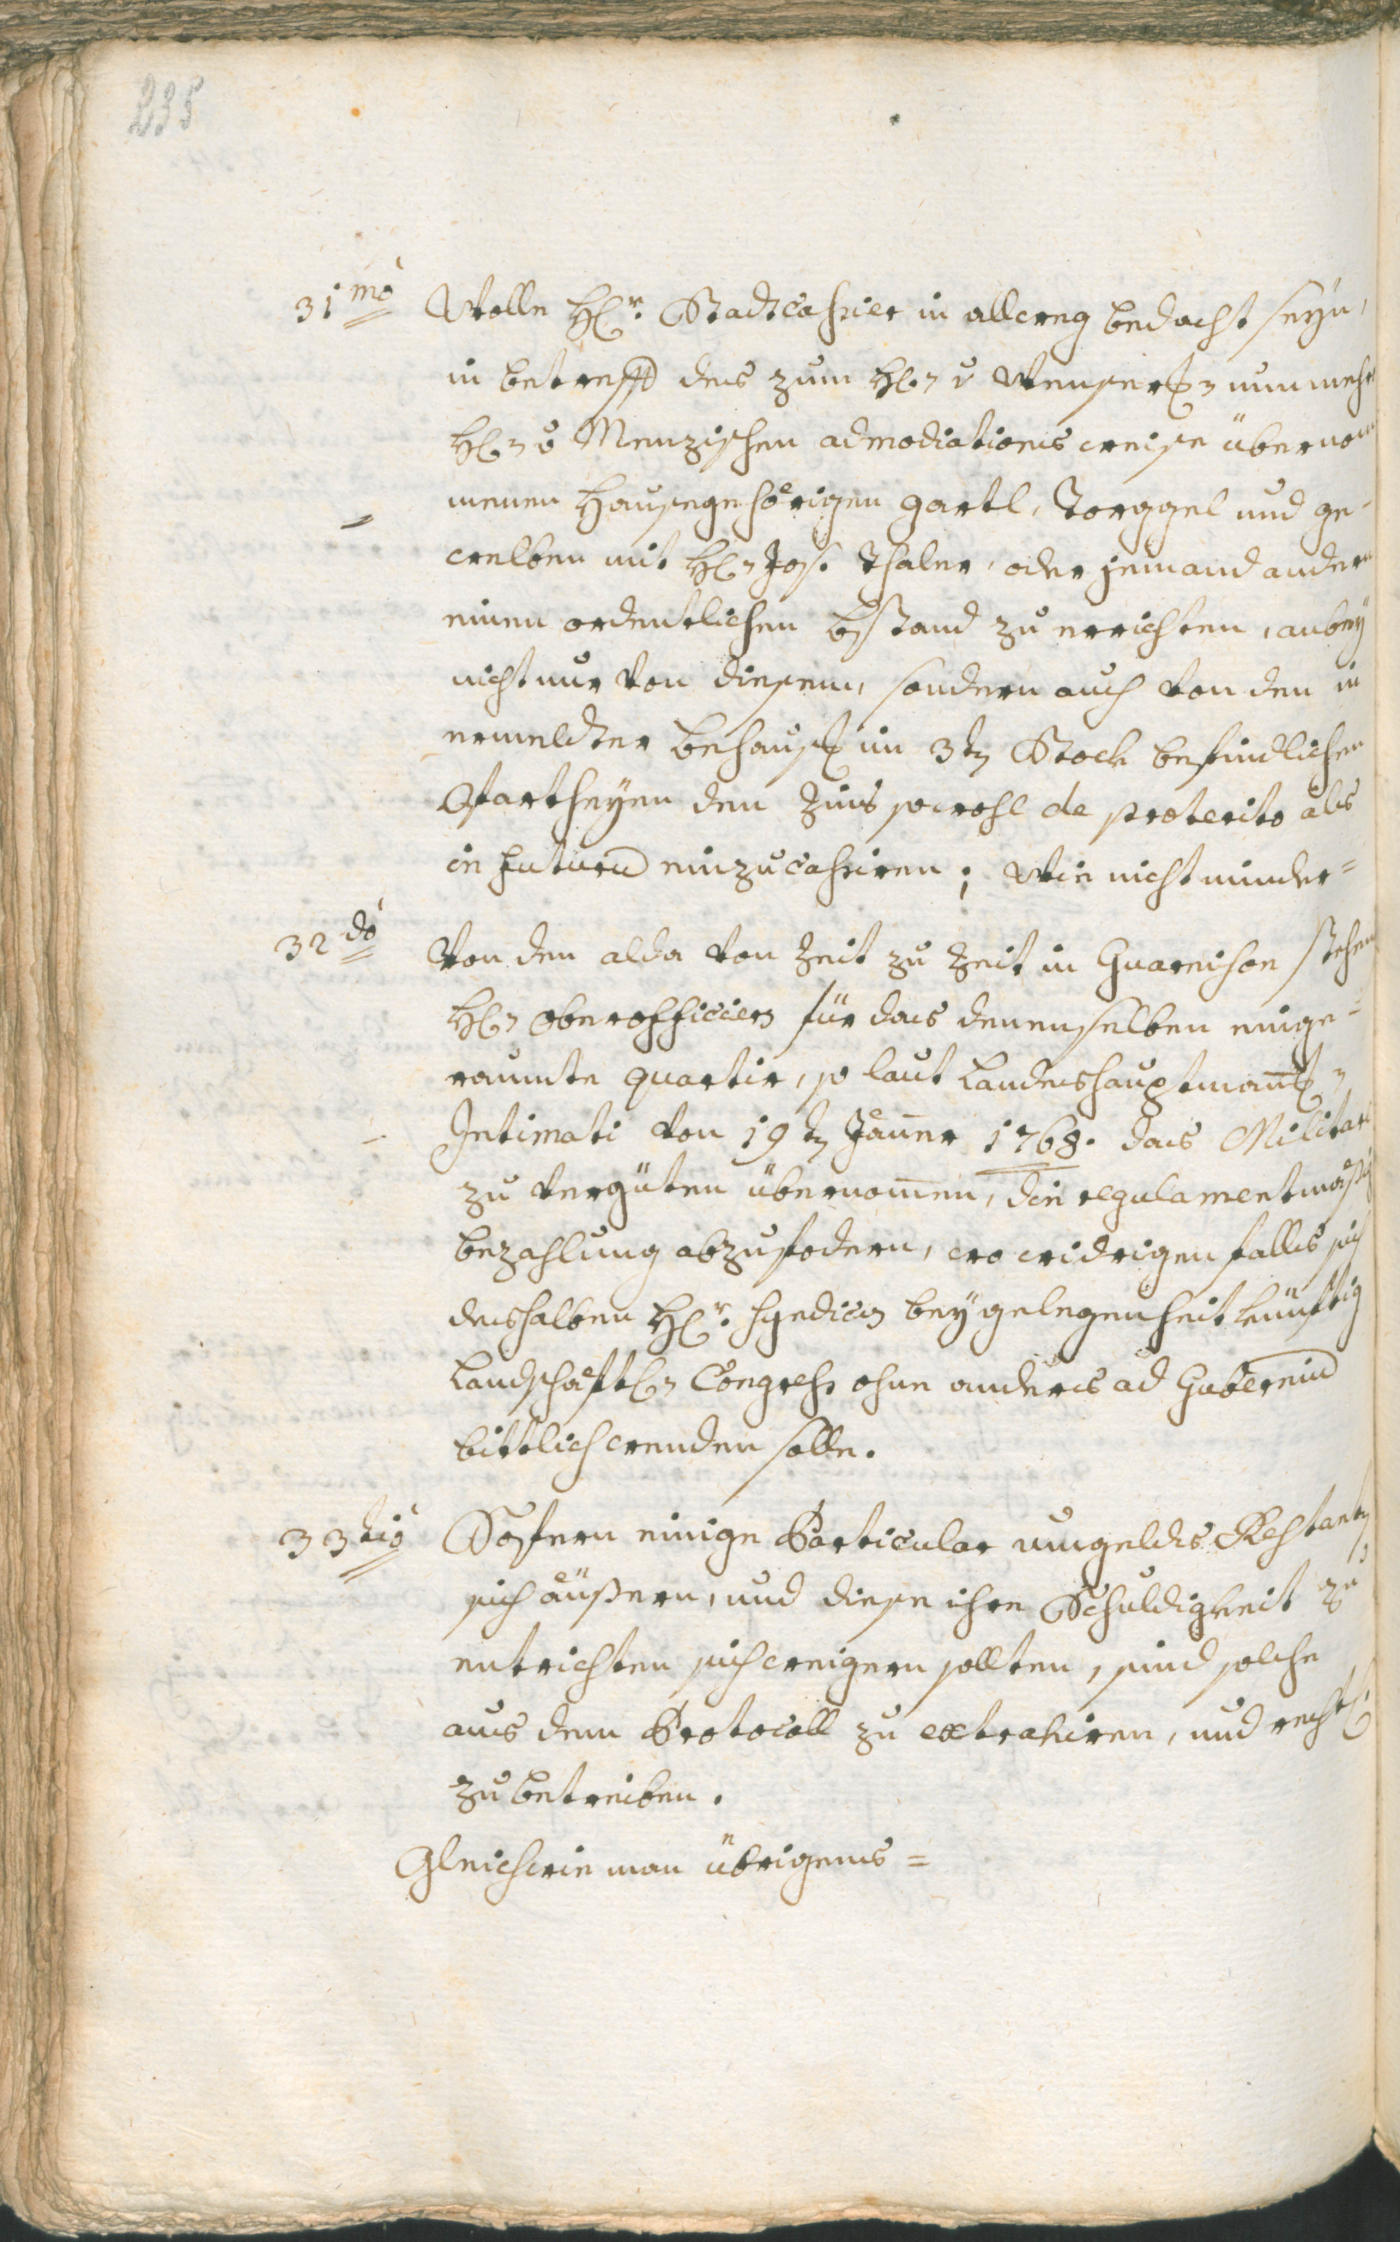 235
31mo Wolle H[err] Stadtcassier in allweeg bedacht seÿn,
in betreff des zum H[errn] v Wenserischen nunmehr
H[errn] v Menzischen admodiations weise übernom
menen Hausgehörigen gartl, Torggel und ge-
welben mit H[errn] Jos. Thaler, oder jemand andern
einen ordentlichen bstand zu errichten, anbeÿ
nicht nur von diesem, sondern auch von den in
ermeldter behausung im 3ten Stock befindlichen
Partheÿen den Zins sowohl de præterito als
in futurum einzucassiren; wie nicht minder=
32do Von den alda von Zeit zu Zeit in Guarnison stehen
H[errn] Oberofficiers für das denenselben einge-
raumte quartir, so laut Landeshauptmannschen
Intimati von 19ten Jänner 1768. das Militar
zu vergüten übernommen, die regulamentmäßig
bezahlung abzufodern, wo widrigen falls sich
deshalben H[err] Syndicus beÿ gelegenheit künftig
Landschäftlichen Congress ohne anders ad Gubernium
bittlich wenden solle.
33tio Sofern einige Particular umgelds Restanten
sich äußern, und diese ihre Schuldigkeit zu
entrichten sich weigern sollten, sind solche
aus dem Protocoll zu extrahiren, und rechtl[ich]
zu betreiben.
Gleichwie man übrigens=